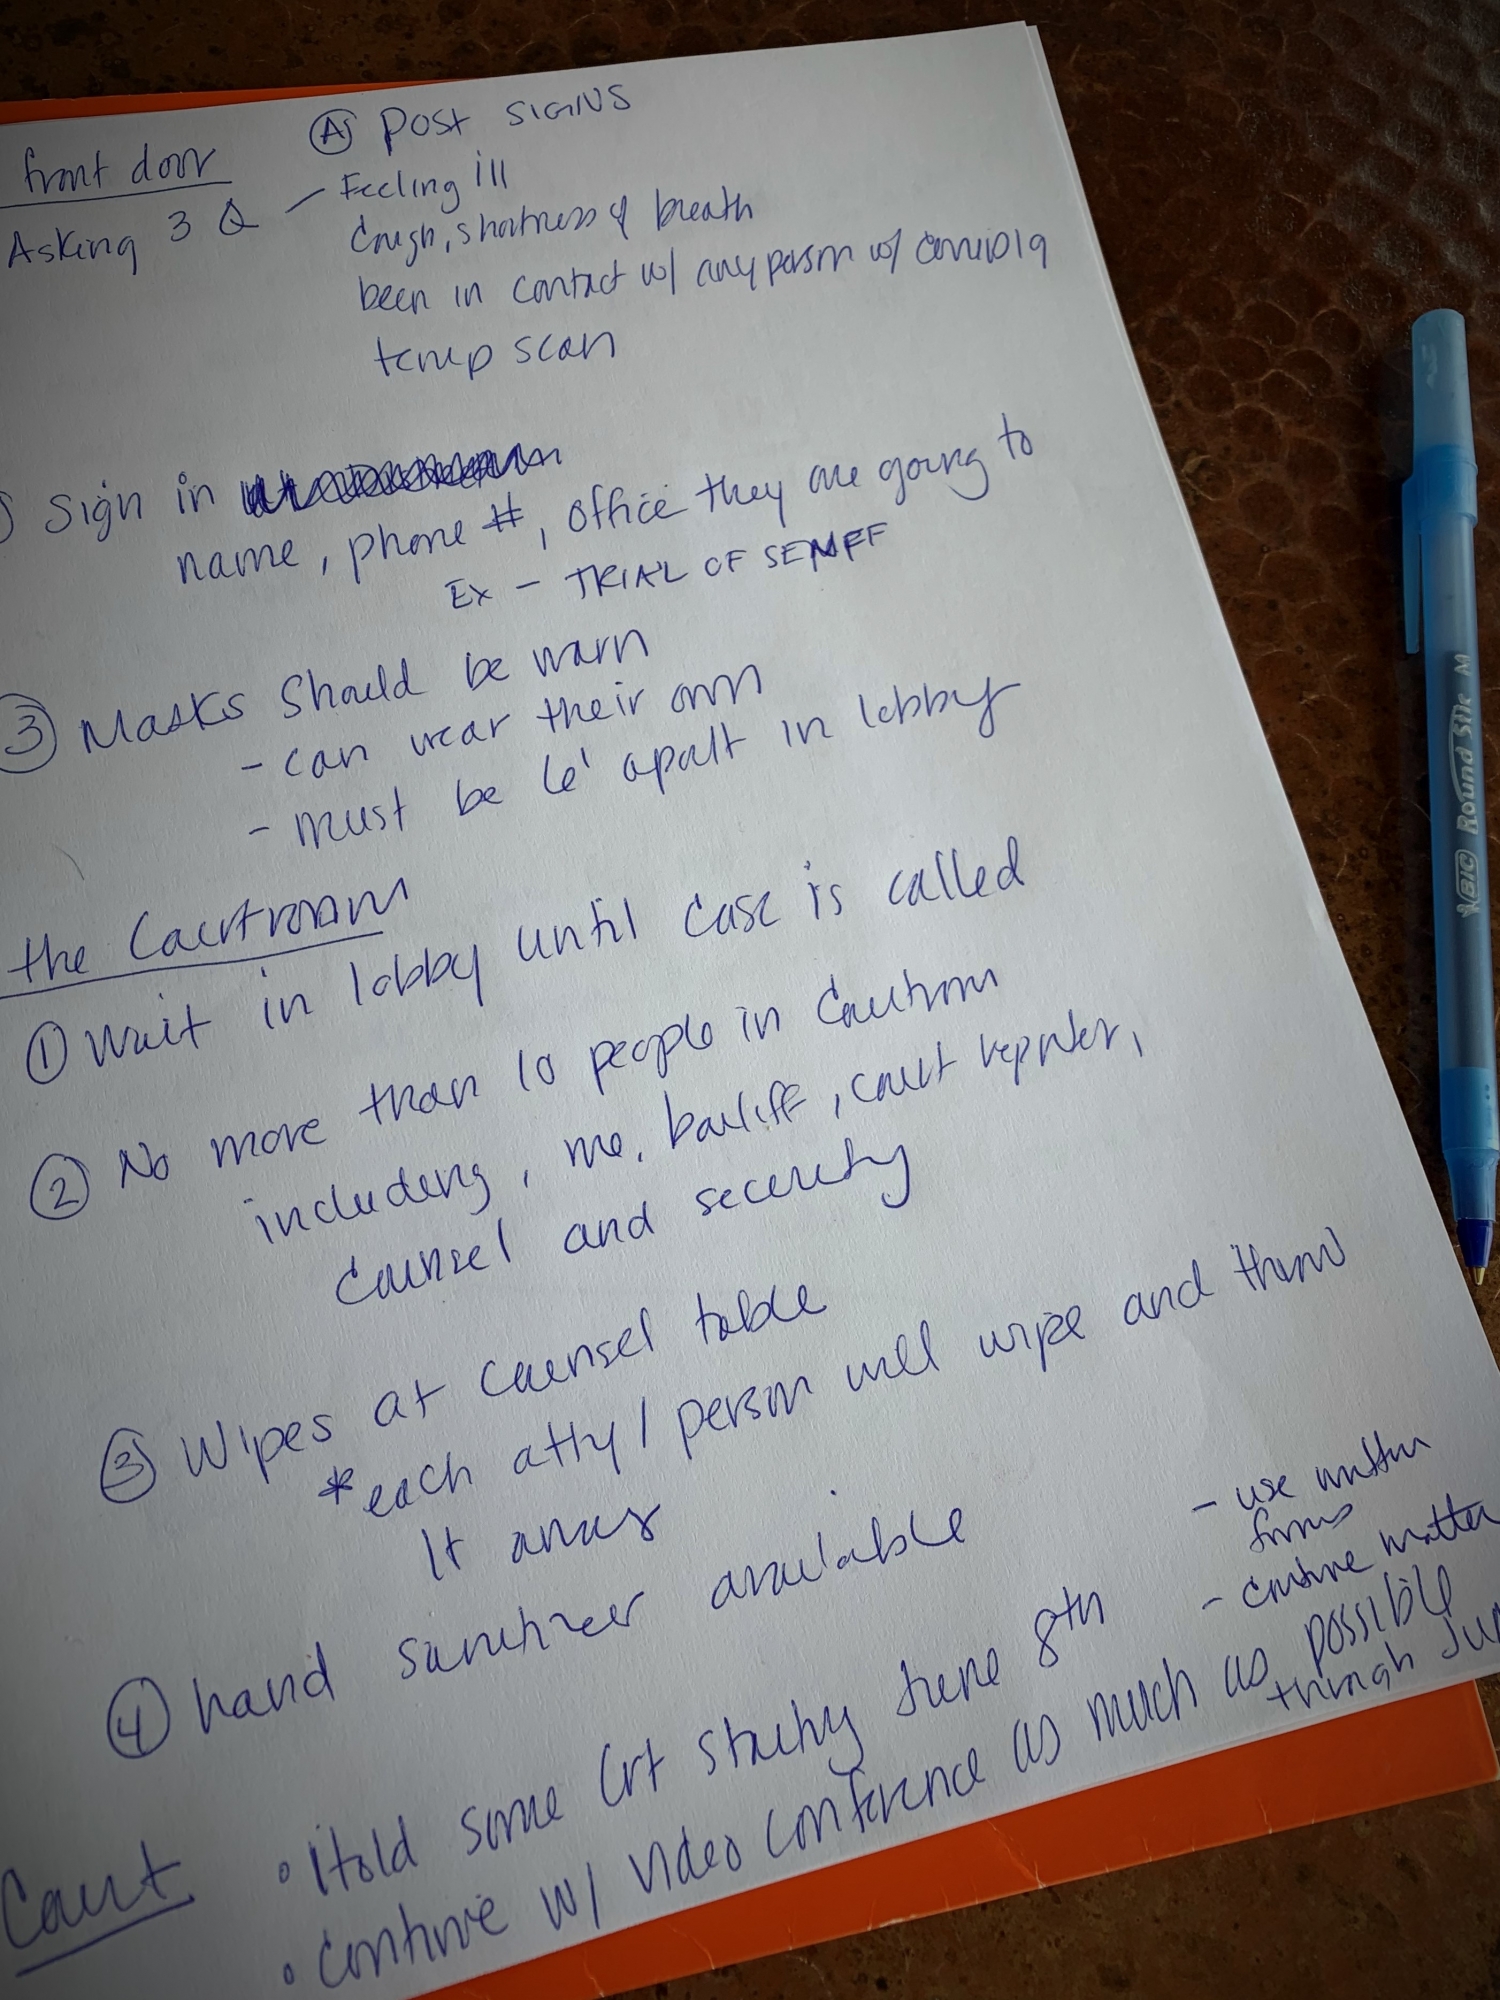 Ⓐ Post SIGNS
front door
Asking 3 Q — Feeling ill
Cough, shortness of breath
been in contact w/ any person w/ COVID19
temp scan
Sign in
name, phone #, office they are going to
Ex - TRIAL OF
③ Masks should be warn
- can wear their own
- must be 6' apart in lobby
the Courtroom
① Wait in lobby until case is called
② No more than 10 people in Courtroom
including, me, bailiff, court reporter,
Counsel and security
③ Wipes at Counsel table
*each atty/person will wipe and throw
it away
④ hand sanitizer available
- use written
forms
- continue matters
Court • Hold some Crt starting June 8th
• Continue w/ video conference as much as possible
through
BIC Round Stic M